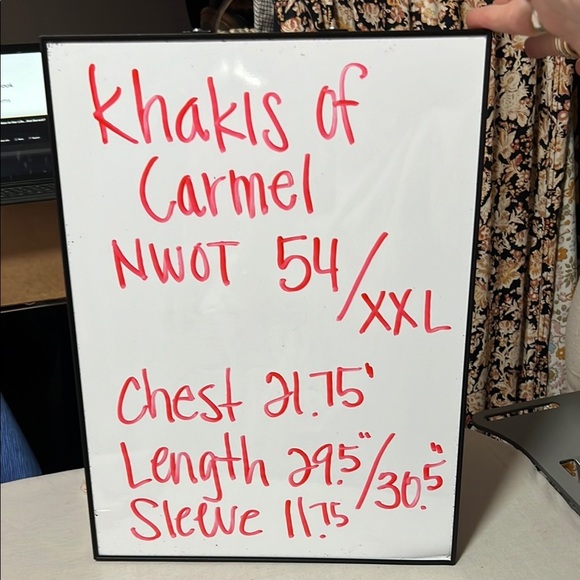 Khakis of
Carmel
NWOT 54/XXL
Chest 21.75"
Length 29.5"/30.5"
Sleeve 11.75